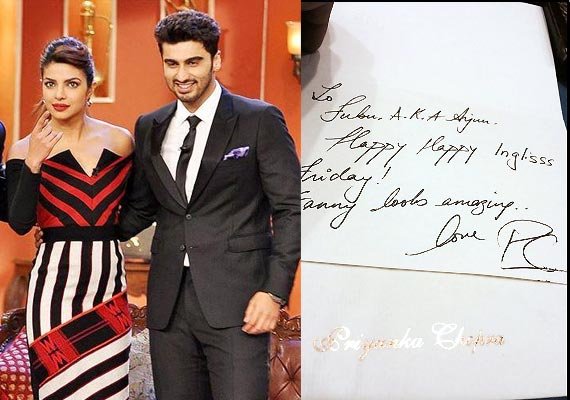 To
Fubu. A.K.A Arjun.
Happy Happy Inglisss
Friday!
Fanny looks amazing..
love PC
Priyanka Chopra